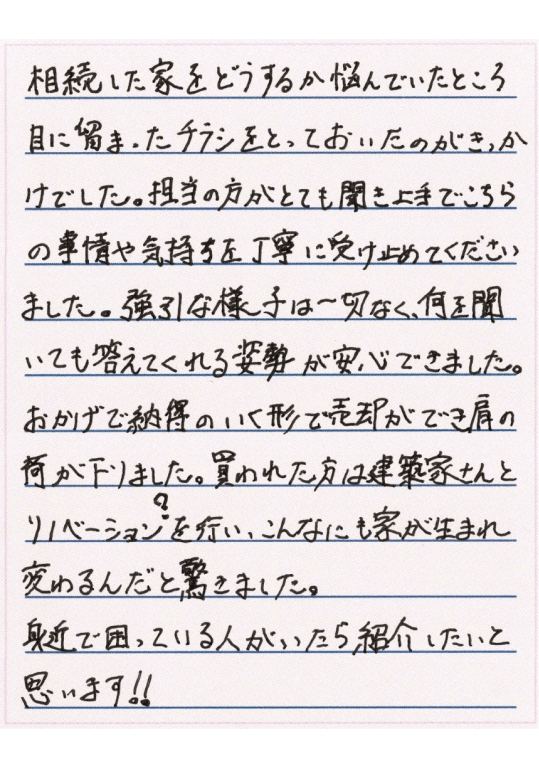 相続した家をどうするか悩んでいたところ
目に留まったチラシをとっておいたのがきっか
けでした。担当の方がとても聞き上手でこちら
の事情や気持ちを丁寧に受け止めてください
ました。強引な様子は一切なく、何を聞
いても答えてくれる姿勢が安心できました。
おかげで納得のいく形で売却ができ肩の
荷が下りました。買われた方は建築家さんと
?
リノベーションを行い、こんなにも家が生まれ
変わるんだと驚きました。
身近で困っている人がいたら紹介したいと
思います!!